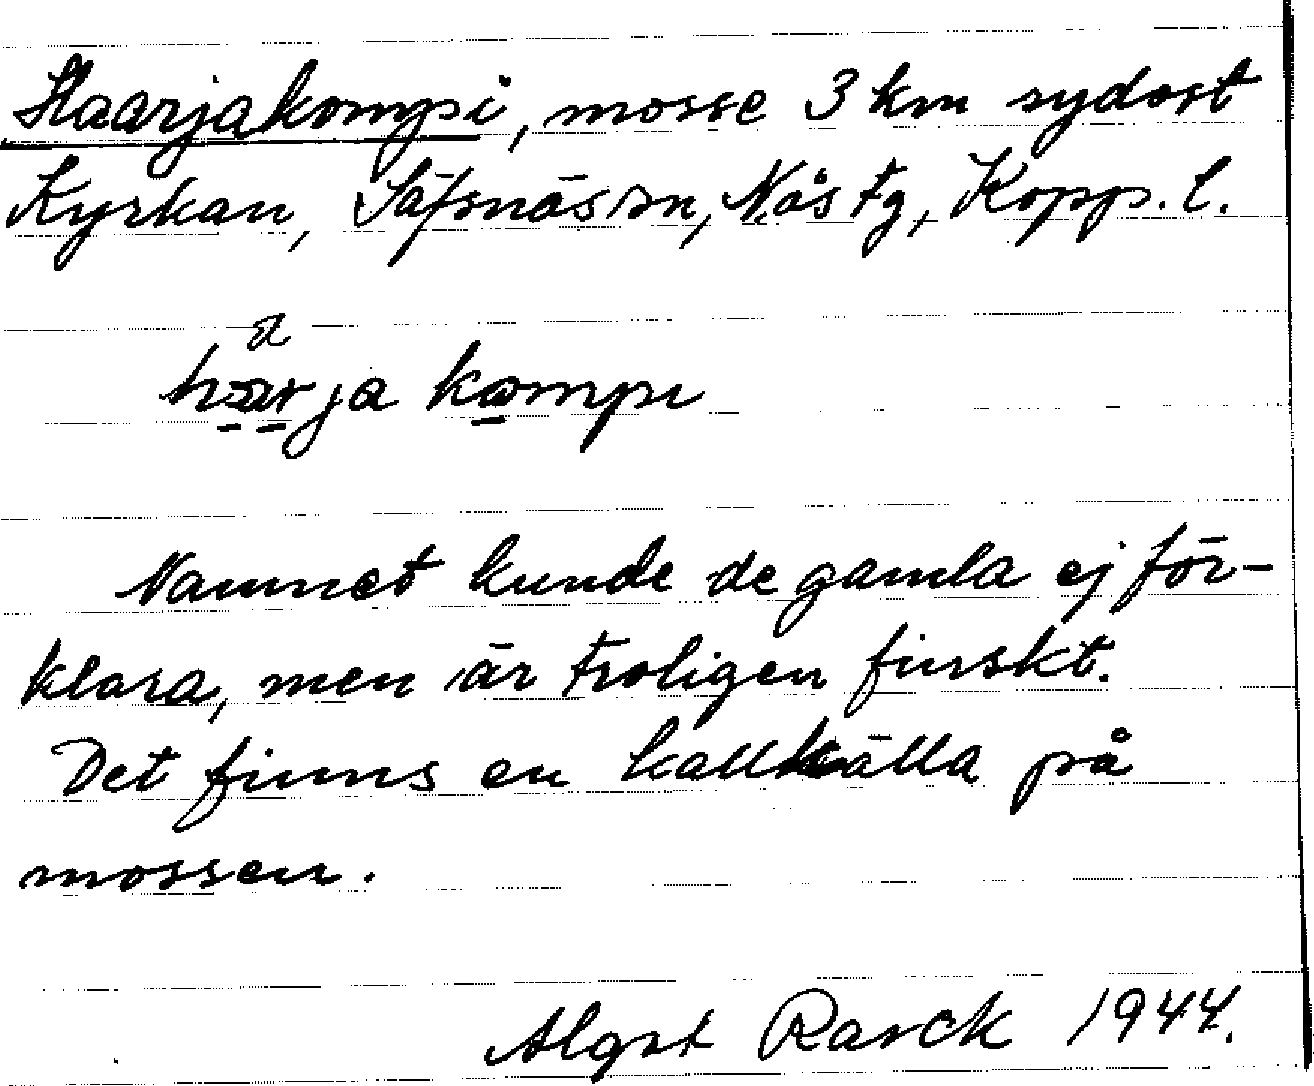 Haarjakompi, mosse 3 km sydost
Kyrkan, Säfsnäs sn, Nås tg, Kopp. l.
a
harja kompi
Namnet kunde de gamla ej för-
klara, men är troligen finskt.
Det finns en kallkälla på
mossen.
Algot Rarck 1944.